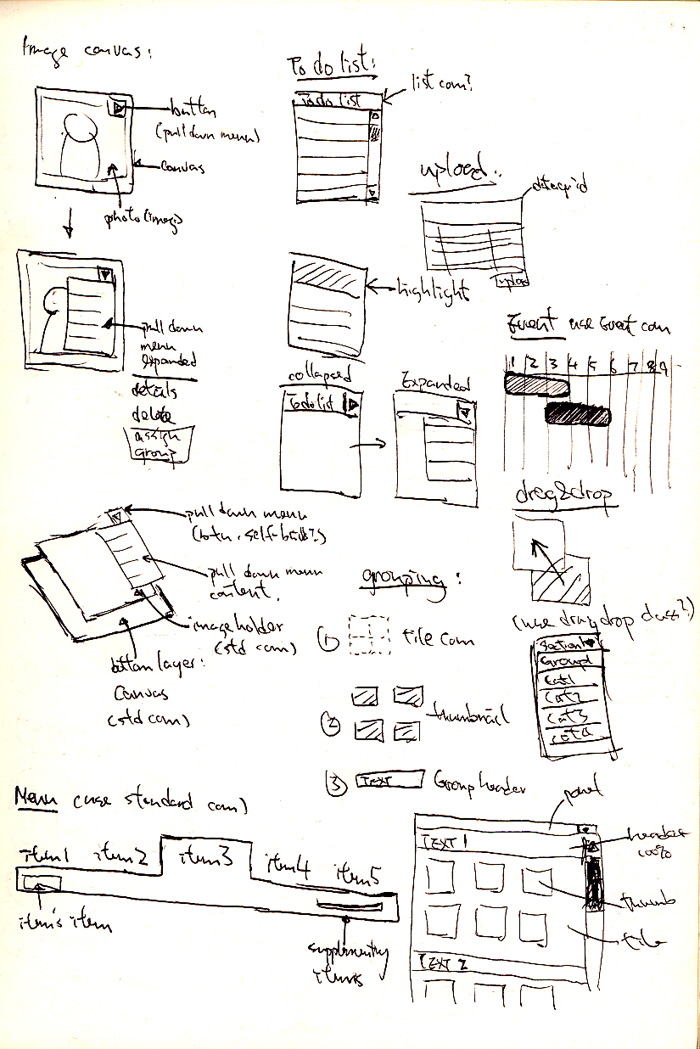 Image canvas:
button
(pull down menu)
canvas
photo (image)
pull down
menu
expanded
details
delete
assign
group
To do list:
list com?
To do list
highlight
collapsed
To do list
Expanded
upload:
datagrid
upload
Event use Event com
1 2 3 4 5 6 7 8 9
drag&drop
(use drag drop class?)
Section
Group1
Cat1
Cat2
Cat3
Cat4
pull down menu
(botn, self-build?)
pull down menu
content.
image holder
(std com)
bottom layer:
Canvas
(std com)
grouping:
1 tile com
2 thumbnail
3 TEXT Group header
Menu (use standard com)
item1 item2 item3 item4 item5
item's item
supplementry
items
panel
TEXT 1
header
100%
thumb
tile
TEXT 2